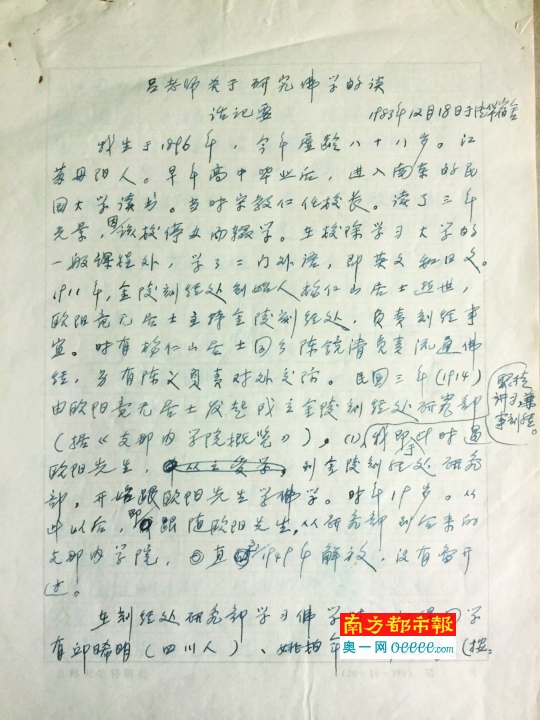 吕老师关于研究佛学的谈
话记要
1983年12月18日于清华宿舍
我生于1896年,今年虚龄八十八岁。江
苏丹阳人。早年高中毕业后,进入南京的民
国大学读书。当时宋教仁任校长。读了三年
光景,因该校停办而辍学。在校除学习大学的
一般课程外,学了二门外语,即英文和日文。
1911年,金陵刻经处创始人杨仁山居士逝世,
欧阳竟无居士主持金陵刻经处,负责刻经事
宜。时有杨仁山居士同乡陈镜清负责流通佛
经,另有陈义负责对外交际。民国三年(1914)
由欧阳竟无居士发起成立金陵刻经处研究部
(据《支那内学院概览》)。(1)我即于此时
欧阳先生,到金陵刻经处研究
部,开始跟欧阳先生学佛学。时年19岁。从
此以后,即跟随欧阳先生,从研究部到后来的
支那内学院,直到1949年解放,没有离开
过。
聚徒
讲习,兼
事刻经。
在刻经处研究部学习佛学时,同学
有邱晞明(四川人)、姚柏年(按:
南方都市報
奥一网 oeeee.com